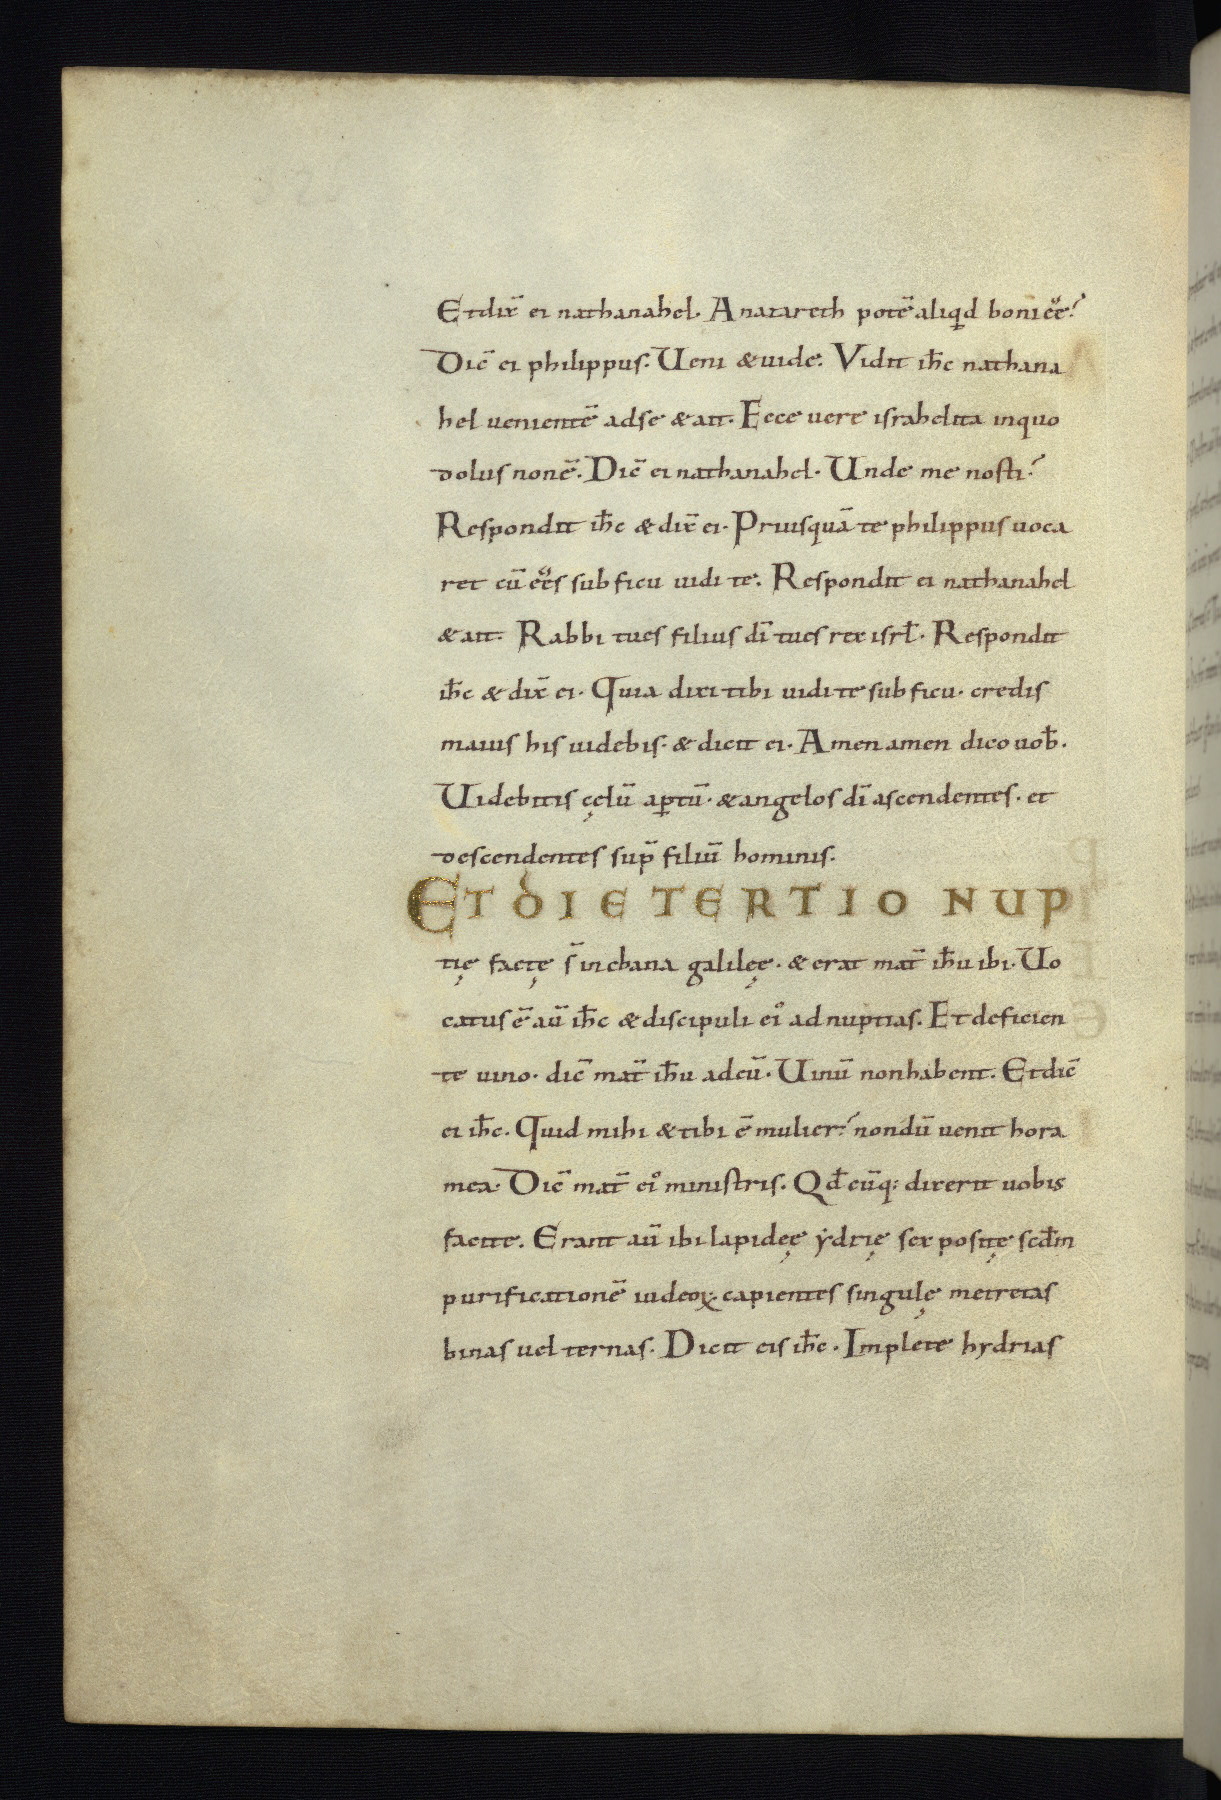 Et dix̄ ei nathanahel. A nazareth potē aliqd boni ēē?
Dic̄ ei philippus. Ueni & uide. Vidit ih̄c nathana
hel uenientē ad se & ait. Ecce uere israhelita in quo
dolus non ē. Dic̄ ei nathanahel. Unde me nosti?
Respondit ih̄c & dix̄ ei. Priusquā te philippus uoca
ret cū eēs sub ficu uidi te. Respondit ei nathanahel
& ait. Rabbi tu es filius dī tu es rex isrl̄. Respondit
ih̄c & dix̄ ei. Quia dixi tibi uidi te sub ficu. credis
maius his uidebis. & dicit ei. Amen amen dico uob̄.
Uidebitis cęlū aꝑtū. & angelos dī ascendentes. et
descendentes sup̄ filiū hominis.
ET DIE TERTIO NUP
tię factę s̄ in chana galilęę. & erat mat̄ ih̄u ibi. Uo
catus ē aū ih̄c & discipuli ei᾿ ad nuptias. Et deficien
te uino. dic̄ mat̄ ih̄u ad eū. Uinū non habent. Et dic̄
ei ih̄c. Quid mihi & tibi ē mulier? nondū uenit hora
mea. Dic̄ mat̄ ei᾿ ministris. Qd̄ cūq; dixerit uobis
facite. Erant aū ibi lapidęę ẏdrię sex positę scd̄m
purificationē iudeoꝝ capientes singulę metretas
binas uel ternas. Dicit eis ih̄c. Implete hydrias